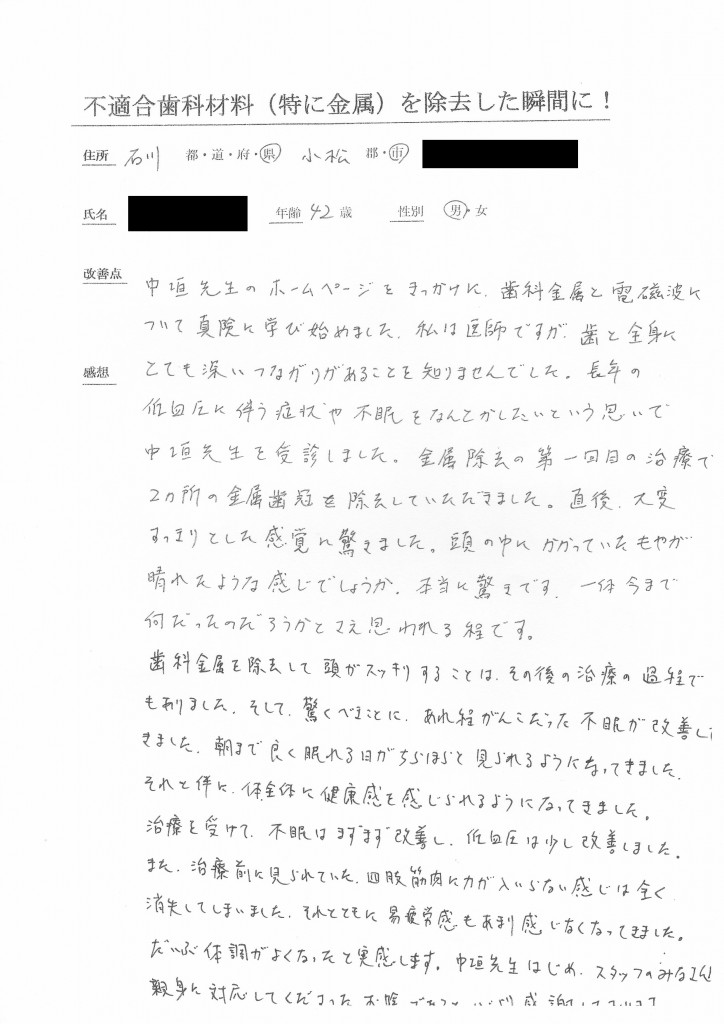 不適合歯科材料（特に金属）を除去した瞬間に！
住所 石川 都・道・府・県 小松 郡・市
氏名 年齢 42 歳 性別 男・女
改善点
中垣先生のホームページをきっかけに、歯科金属と電磁波に
ついて真険に学び始めました。私は医師ですが、歯と全身に
感想
とても深いつながりがあることを知りませんでした。長年の
低血圧に伴う症状や不眠をなんとかしたいという思いで
中垣先生を受診しました。金属除去の第一回目の治療で
2ヵ所の金属歯冠を除去していただきました。直後、大変
すっきりとした感覚に驚きました。頭の中にかかっていたもやが
晴れたような感じでしょうか。本当に驚きです。一体今まで
何だったのだろうかとさえ思われる程です。
歯科金属を除去して頭がスッキリすることは、その後の治療の過程で
もありました。そして、驚くべきことに、あれ程がんこだった不眠が改善し
きました。朝まで良く眠れる日がちらほらと見られるようになってきました。
それと伴に、体全体に健康感を感じられるようになってきました。
治療を受けて、不眠はますます改善し、低血圧は少し改善しました。
また、治療前に見られていた、四肢筋肉に力が入いらない感じは全く
消失してしまいました。それとともに易疲労感もあまり感じなくなってきました。
だいぶ体調がよくなったと実感します。中垣先生はじめ、スタッフのみなさん
親身に対応してくださったお陰